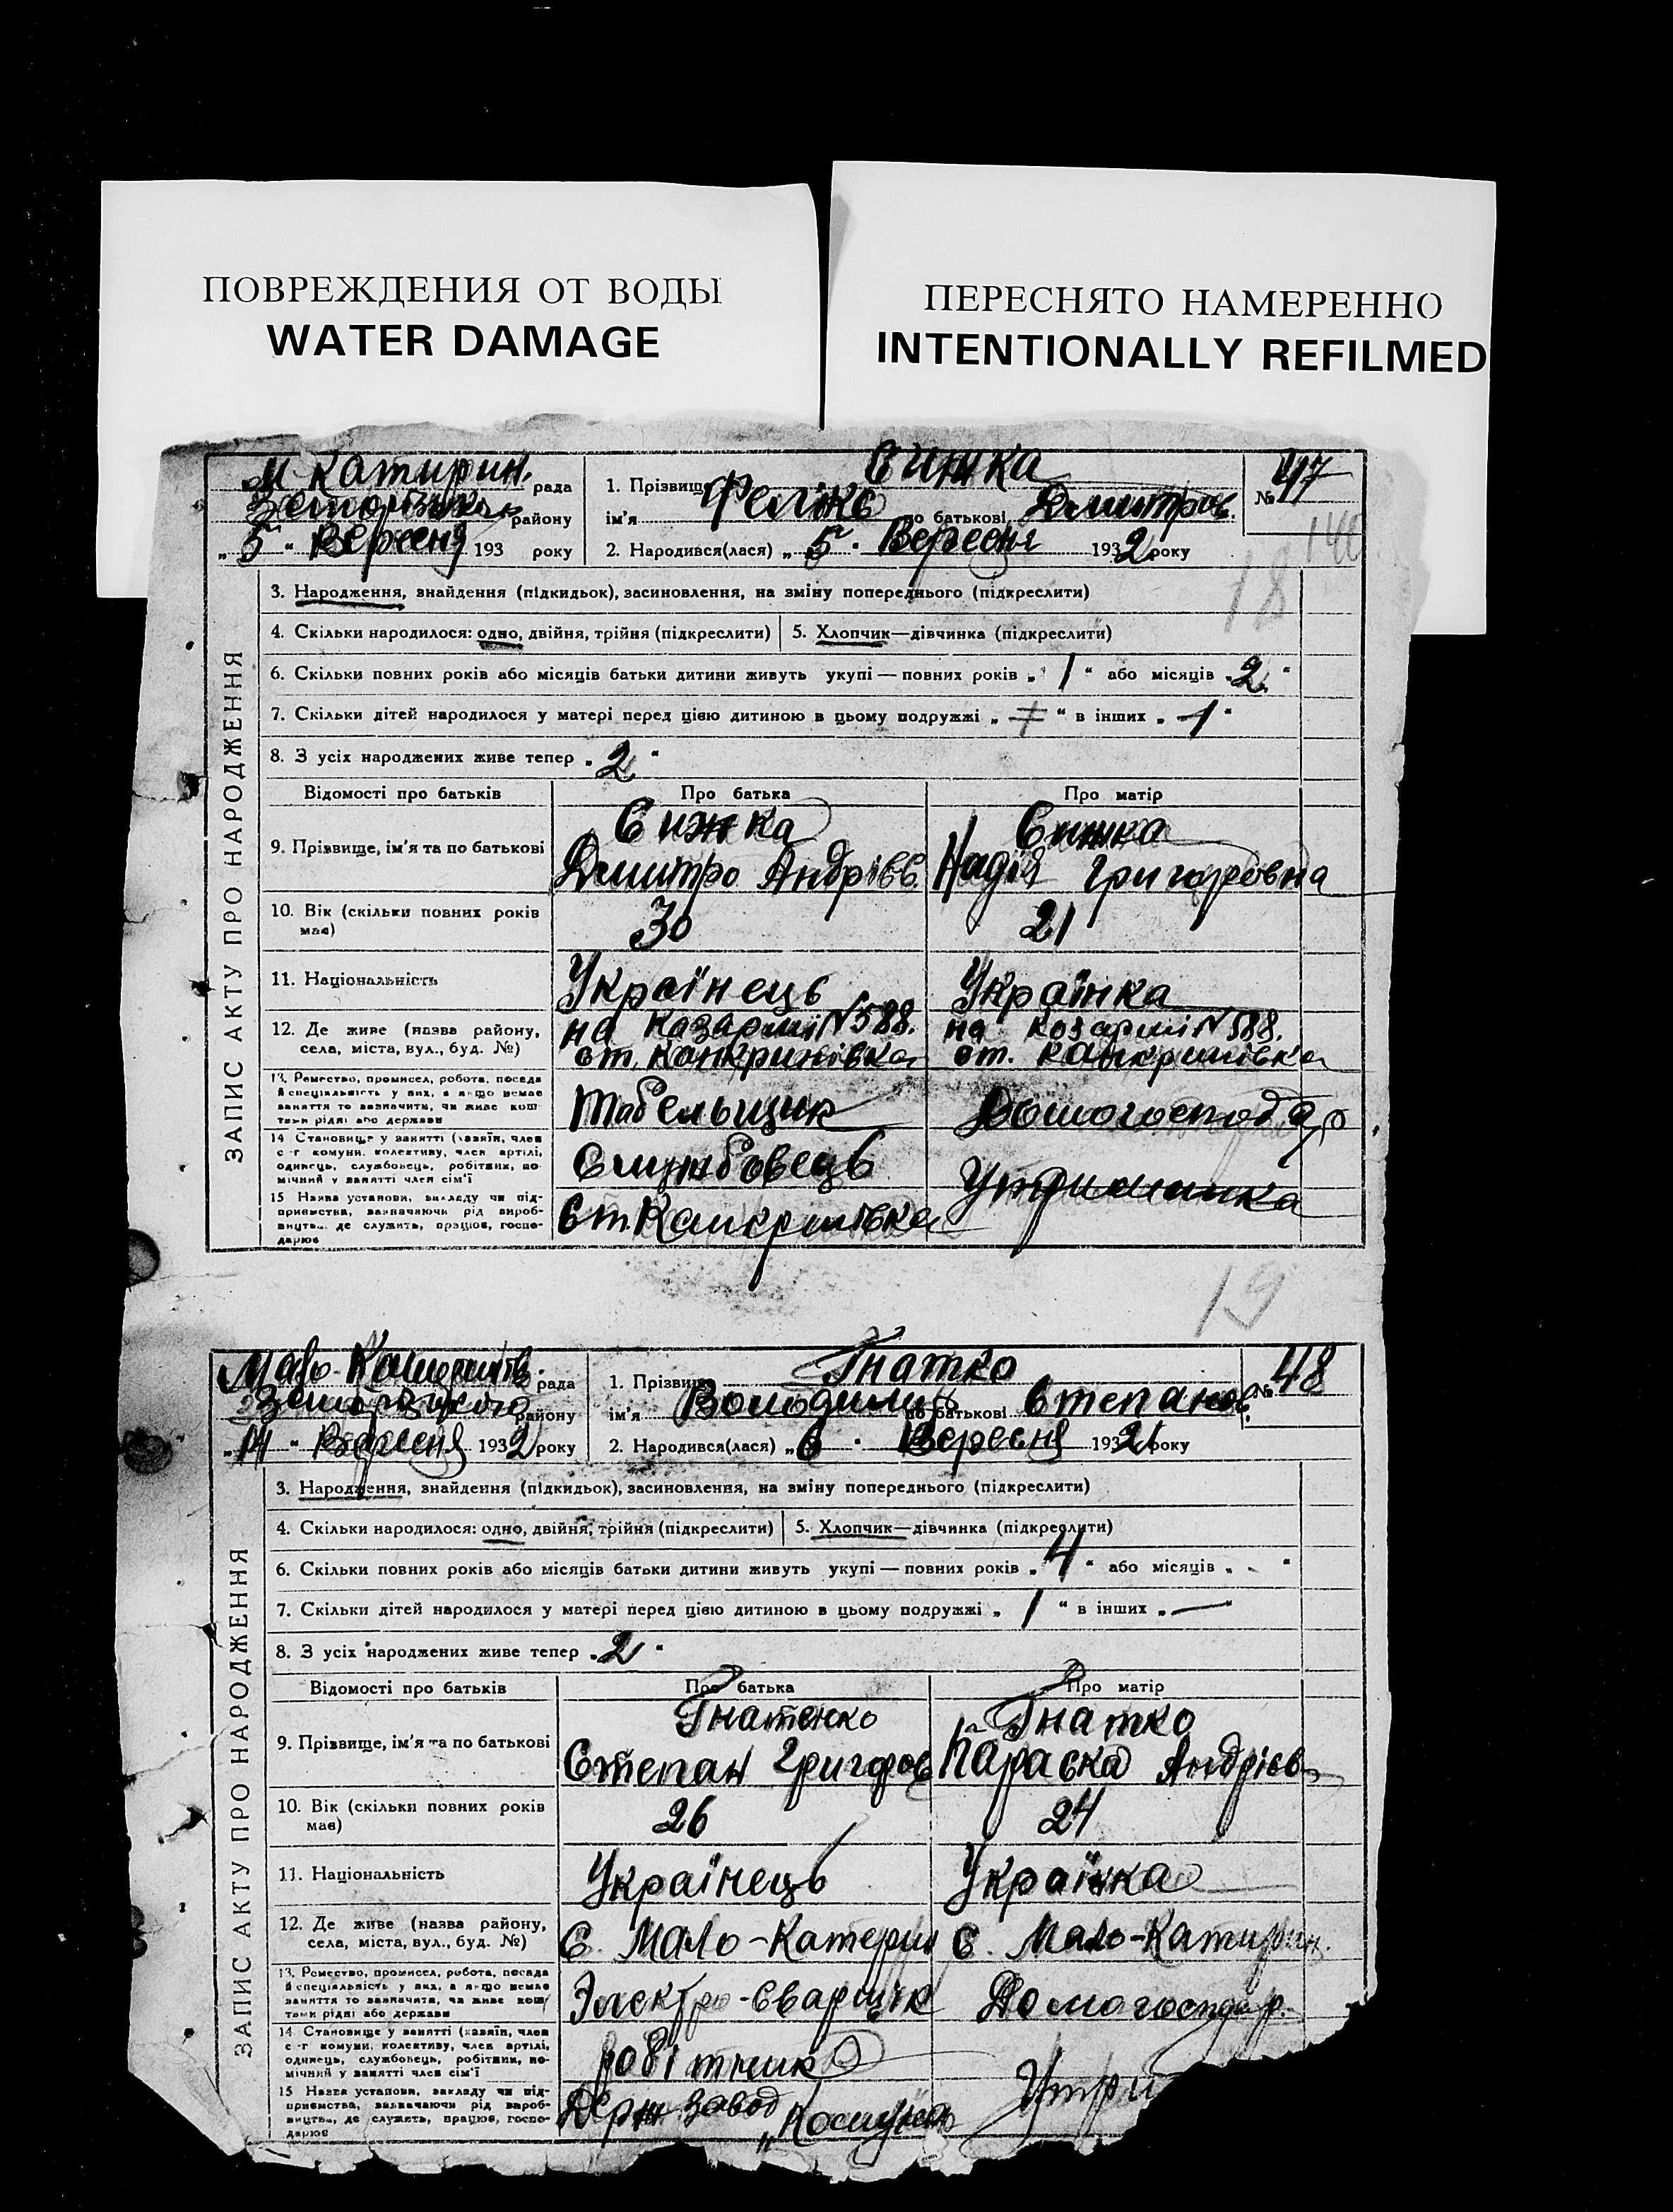 ПОВРЕЖДЕНИЯ ОТ ВОДЫ
WATER DAMAGE
ПЕРЕСНЯТО НАМЕРЕННО
INTENTIONALLY REFILMED
ЗАПИС АКТУ ПРО НАРОДЖЕННЯ
М Катирин. рада
району
„5“ Вересня 193 року
1. Прізвище Сижка
ім'я Фелікс по батькові Дмитров.
2. Народився(лася) „5“ Вересня 1932 року
№ 47
140
18
3. Народження, знайдення (підкидьок), засиновлення, на зміну попереднього (підкреслити)
4. Скільки народилося: одно, двійня, трійня (підкреслити) 5. Хлопчик—дівчинка (підкреслити)
6. Скільки повних років або місяців батьки дитини живуть укупі — повних років „1“ або місяців „2“
7. Скільки дітей народилося у матері перед цією дитиною в цьому подружжі „ “ в інших „1“
8. З усіх народжених живе тепер „2“
Відомості про батьків Про батька Про матір
9. Прізвище, ім'я та по батькові
Сижка
Дмитро Андрієв.
Сижка
Надія Григоровна
10. Вік (скільки повних років має) 30 21
11. Національність Українець Українка
12. Де живе (назва району, села, міста, вул., буд. №)
на казармі N 588.
ст. Канкринівка
на козармі N 588.
ст. Канкринівка
13. Ремество, промисел, робота, посада й спеціяльність у них, а якщо немає заняття то зазначити, чи живе коштами рідні або держави
Табельщик Домогосподар
14 Становище у занятті (хазяїн, член с-г комуни, колективу, член артілі, одинець, службовець, робітник, помічний у занятті член сім'ї
Службовець Утриманка
15 Назва установи, закладу чи підприємства, зазначаючи рід виробництва, де служить, працює, господарює
Ст Канкринівка
19
ЗАПИС АКТУ ПРО НАРОДЖЕННЯ
Мало-Катеринів. рада
Запорізького району
„14“ Вересня 1932 року
1. Прізвище Гнатко
ім'я Володимир по батькові Степанов.
2. Народився(лася) „6“ Вересня 1932 року
№ 48
3. Народження, знайдення (підкидьок), засиновлення, на зміну попереднього (підкреслити)
4. Скільки народилося: одно, двійня, трійня (підкреслити) 5. Хлопчик—дівчинка (підкреслити)
6. Скільки повних років або місяців батьки дитини живуть укупі — повних років „4“ або місяців „-“
7. Скільки дітей народилося у матері перед цією дитиною в цьому подружжі „1“ в інших „—“
8. З усіх народжених живе тепер „2“
Відомості про батьків Про батька Про матір
9. Прізвище, ім'я та по батькові
Гнатенко
Степан Григоров
Гнатко
Параска Андрієв
10. Вік (скільки повних років має) 26 24
11. Національність Українець Українка
12. Де живе (назва району, села, міста, вул., буд. №)
С. Мало-Катерин С. Мало-Катирин.
13. Ремество, промисел, робота, посада й спеціяльність у них, а якщо немає заняття то зазначити, чи живе коштами рідні або держави
Электро-сварщік Домогосподар.
14 Становище у занятті (хазяїн, член с-г комуни, колективу, член артілі, одинець, службовець, робітник, помічний у занятті член сім'ї
робітник Утри
15 Назва установи, закладу чи підприємства, зазначаючи рід виробництва, де служить, працює, господарює
Держ завод
„Комунар